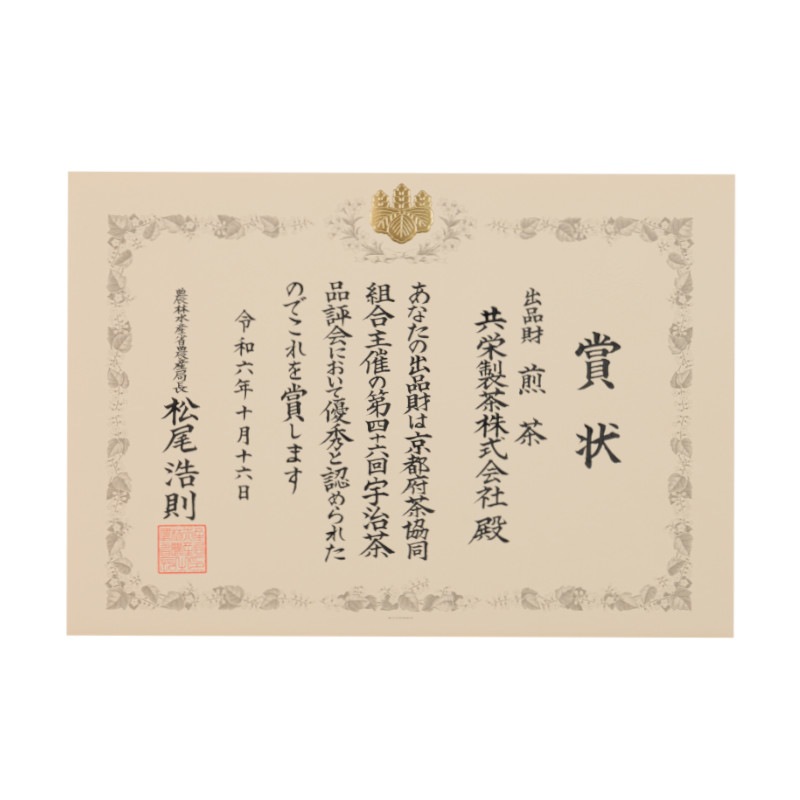 賞状
出品財 煎茶
共栄製茶株式会社 殿
あなたの出品財は京都府茶協同
組合主催の第四十六回宇治茶
品評会において優秀と認められた
のでこれを賞します
令和六年十月十六日
農林水産省農産局長 松尾浩則